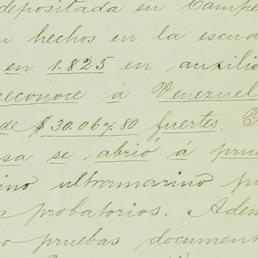 depositada en Campe
hechos en la escua
en 1.825 en auxilio
reconoce á Venezuel
de $30.067,80 fuertes.
sa se abrió á prue
ino ultramarino pa
s probatorios. Adem
o pruebas document